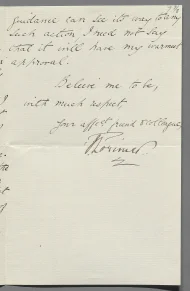 guidance can see its way to any
such action I need not say
that it will have my warmest
approval.
Believe me to be,
with much respect
Your affect. friend & colleague,
Lorimer